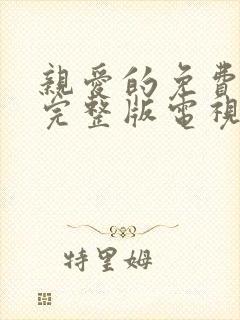 親愛的免費
完整版電視
特里姆